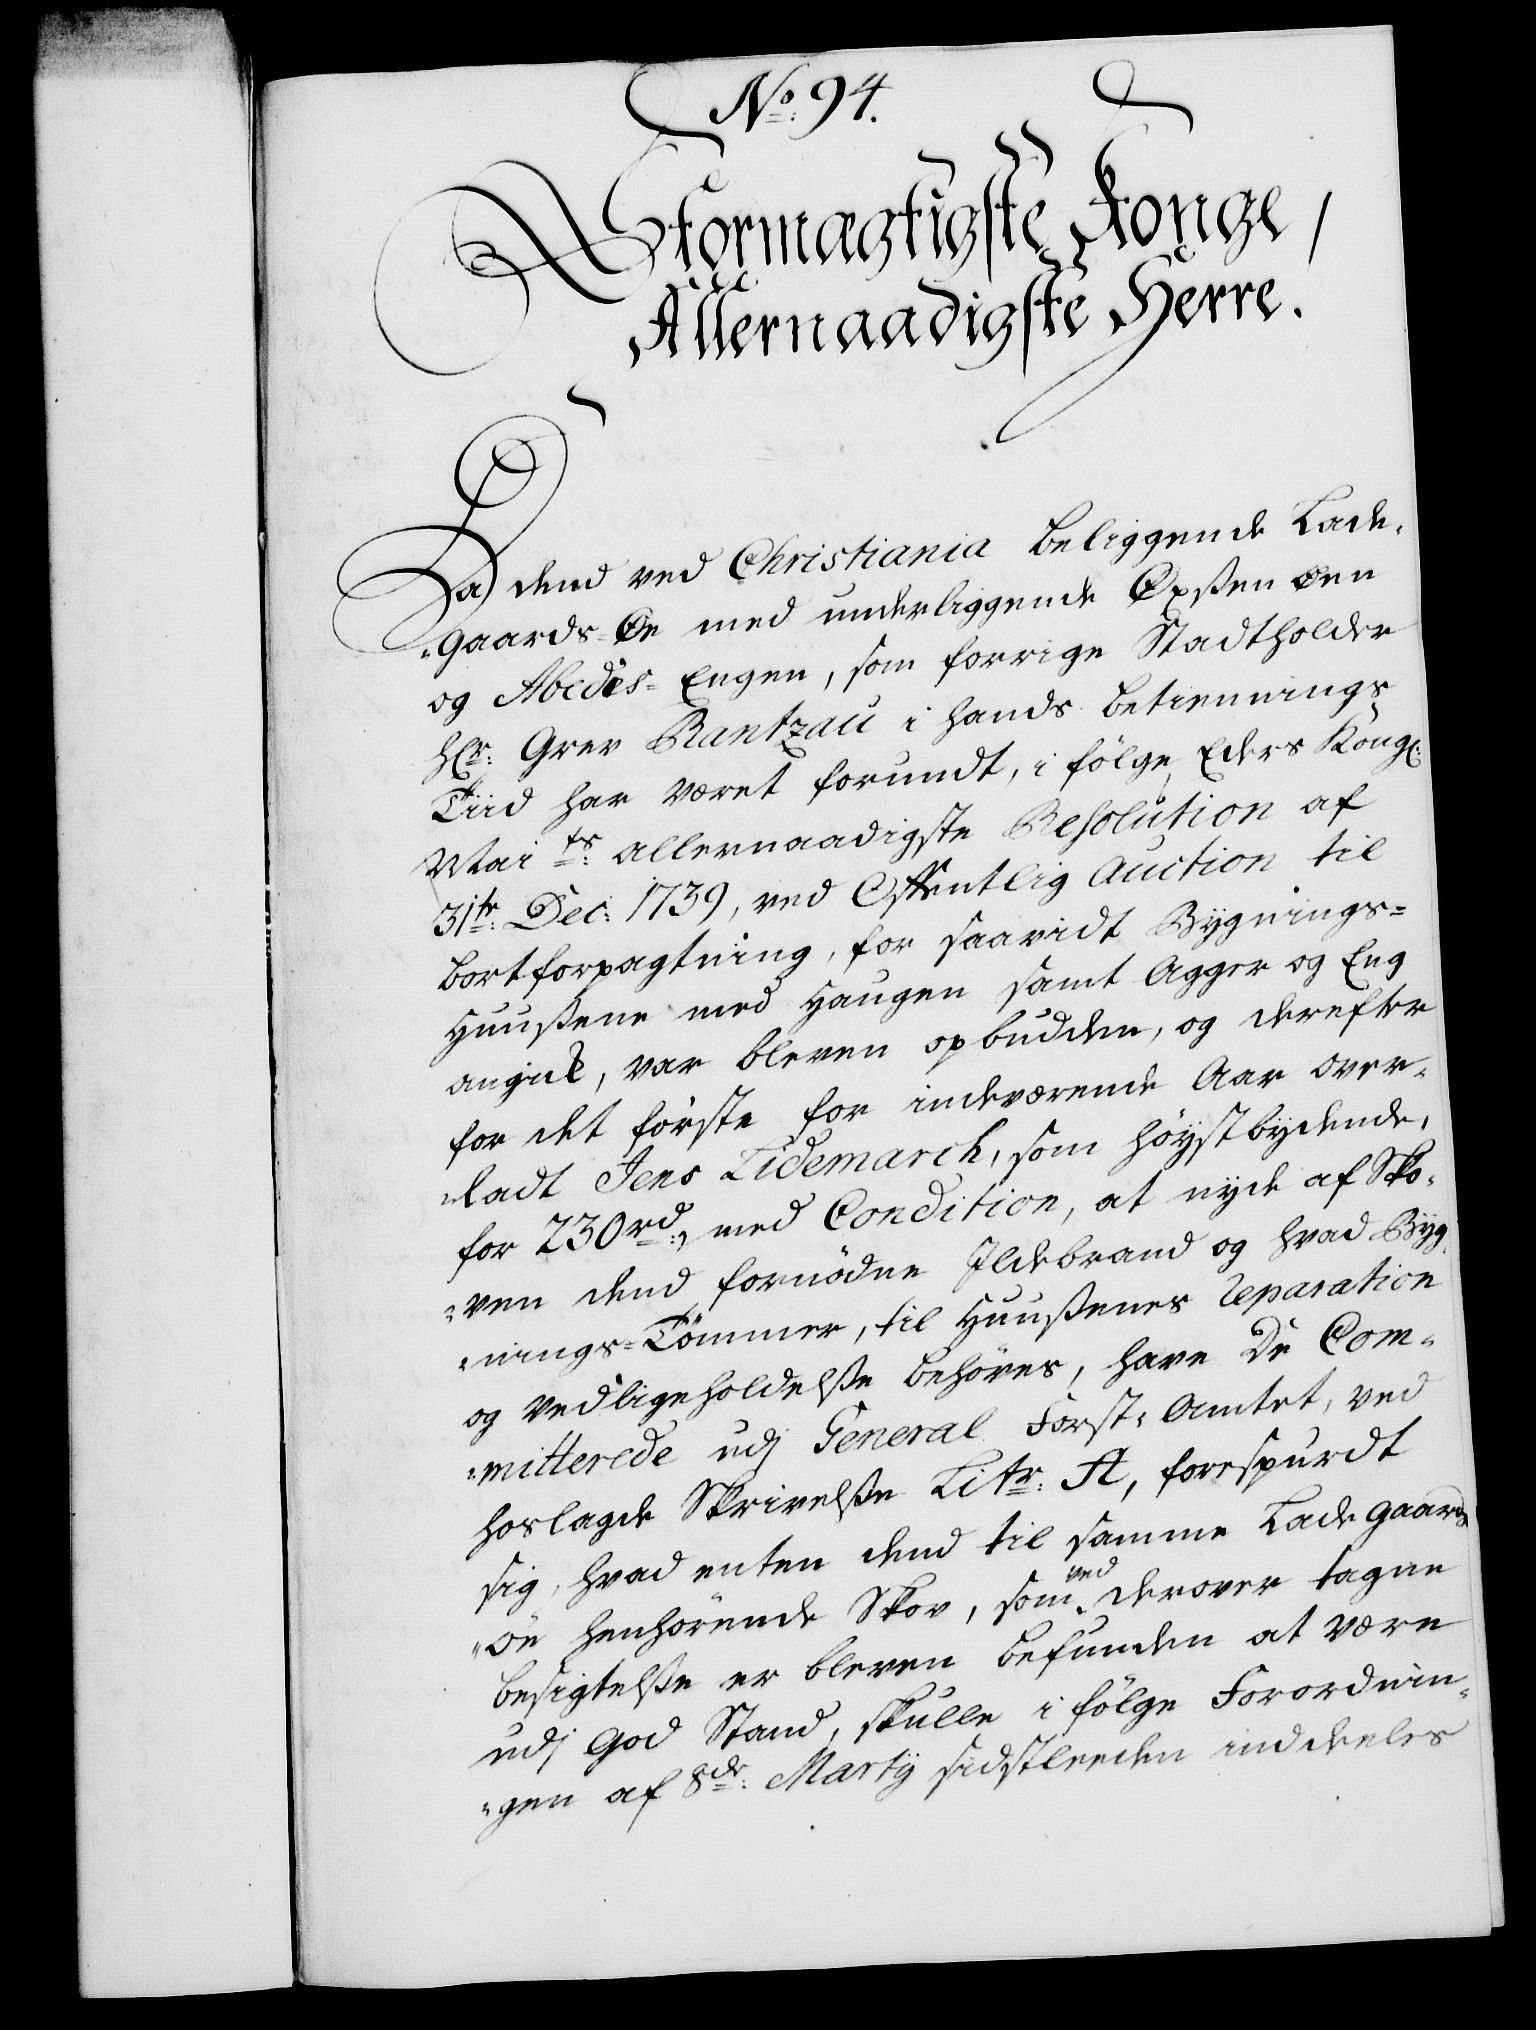 No: 94.
Stormægtigste Konge,
Allernaadigste Herre.
Da dend ved Christiania beliggende Lade-
-gaards-Øe med underliggende Oxsen øen
og Abedis-Engen, som forrige Stadtholder
Hr: Grev Rantzau i hands betiennings
Tiid har været forundt, i følge Eders Kongl:
Maits: allernaadigste Resolution af
31te: Dec: 1739, ved Offentlig Auction til
bortforpagtning, for saavidt Bygnings-
Huusene med Haugen samt Agger og Eng
angik, var bleven opbudden, og derefter
for det første for indeværende Aar over-
-ladt Jens Lidemarck, som høystbydende,
for 230 rd:, med Condition, at nyde af Sko-
-ven dend fornødne Ildebrand og hvad Byg-
-nings-Tømmer, til Huusenes reparation
og vedligeholdelse behøves, have De Com-
-mitterede udj General Forst-Amtet, ved
hoslagde Skrivelse Litr: A, forespurdt
sig, hvad enten dend til samme Ladegaards
-øe henhørende Skov, som ved derover tagne
besigtelse er bleven befunden at være
udj god Stand, skulle i følge Forordnin-
-gen af 8de: Martÿ sidstleeden inddeeles